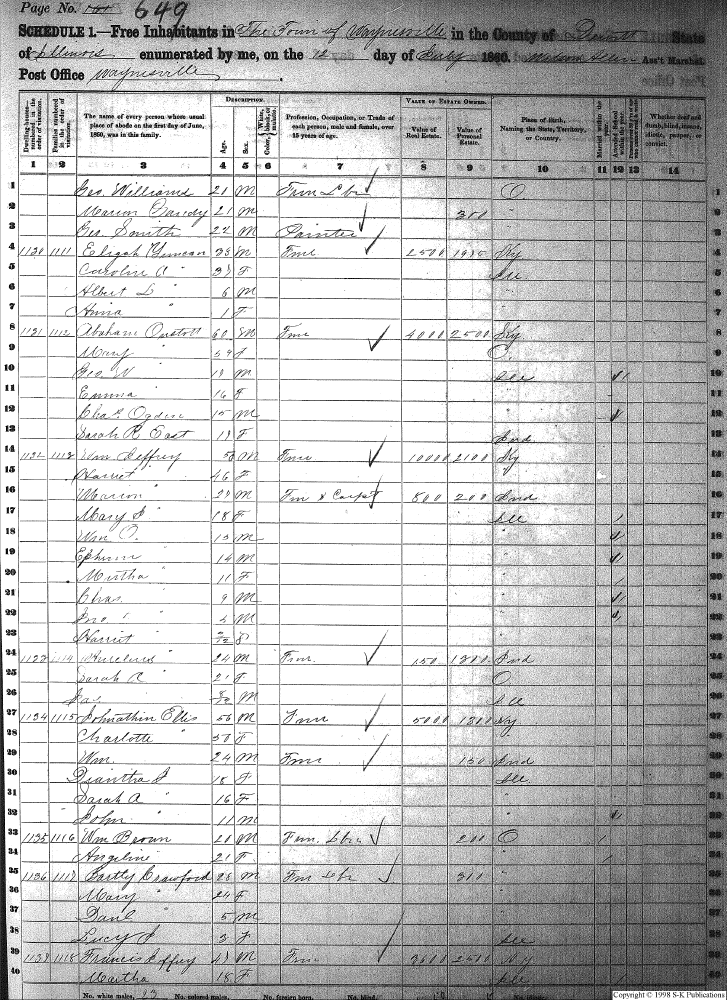 Page No. 101 649
SCHEDULE 1.—Free Inhabitants in The Town of Waynesville in the County of Dewitt State
of Illinois enumerated by me, on the 12 day of July 1860. Ass't Marshal.
Post Office Waynesville
DESCRIPTION. VALUE OF ESTATE OWNED.
Dwelling-houses—numbered in the order of visitation.
Families numbered in the order of visitation.
The name of every person whose usual place of abode on the first day of June, 1860, was in this family.
Age. Sex. Color,
Profession, Occupation, or Trade of each person, male and female, over 15 years of age.
Value of Real Estate. Value of Personal Estate.
Place of Birth, Naming the State, Territory, or Country.
Married within the year.
Whether deaf and dumb, blind, insane, idiotic, pauper, or convict.
1 2 3 4 5 6 7 8 9 10 11 12 13 14
1 Geo. Williams 21 M Farm Lbr O
2 Marion Gandy 21 M 300 "
3 Geo. Smith 22 M Painter "
4 1130 1111 Elijah Duncan 38 M Fmr 2500 1985 Ky
5 Caroline A " F Ill
6 Albert L " 6 M "
7 Anna " 1 F "
8 1131 1112 Abraham Onstott 60 M Fmr 4000 2500 Ky
9 Mary " 59 F O.
10 Geo W " 19 M Ill
11 Emma " 16 F "
12 Chas. Ogden 15 M "
13 Sarah R East 19 F Ind
14 1132 1113 Wm. Jeffrey 50 M Fmr 10000 2100 Ky
15 Harriet " 46 F "
16 Marion " M Fm & Carpt 800 200 Ind
17 Mary J " 18 F Ill
18 Wm O. " M "
19 Ephrim " 14 M "
20 Martha " 11 F "
21 Chas. " 9 M "
22 Jno. " M "
23 Harriet " "
24 1133 1114 Aurelius " 24 M Fmr. 150 1300 Ind
25 Sarah " 21 F O
26 Jas M Ill
27 1134 1115 Johnathin Ellis 56 M Fmr 5000 1300 Ky
28 Charlotte " 50 F "
29 Wm. " 24 M Fmr 150 Ind
30 Diantha J 18 F Ill.
31 Sarah A " 16 F "
32 John " 11 M "
33 1135 1116 Wm Brown 20 M Fam. Lbr 200 O
34 Angeline " 21 F "
35 1136 1117 Bartly Crawford 28 M Fm Lbr 310 "
36 Mary " 24 F "
37 Danl " 5 M "
38 Lucy J " 3 F Ill
39 1137 1118 Francis Jeffrey M Fmr 3600 2500 Ky
40 Martha " 18 F Ill
No. white males, 23 No. colored males, No. foreign born, No. blind,
Copyright © 1998 S-K Publications